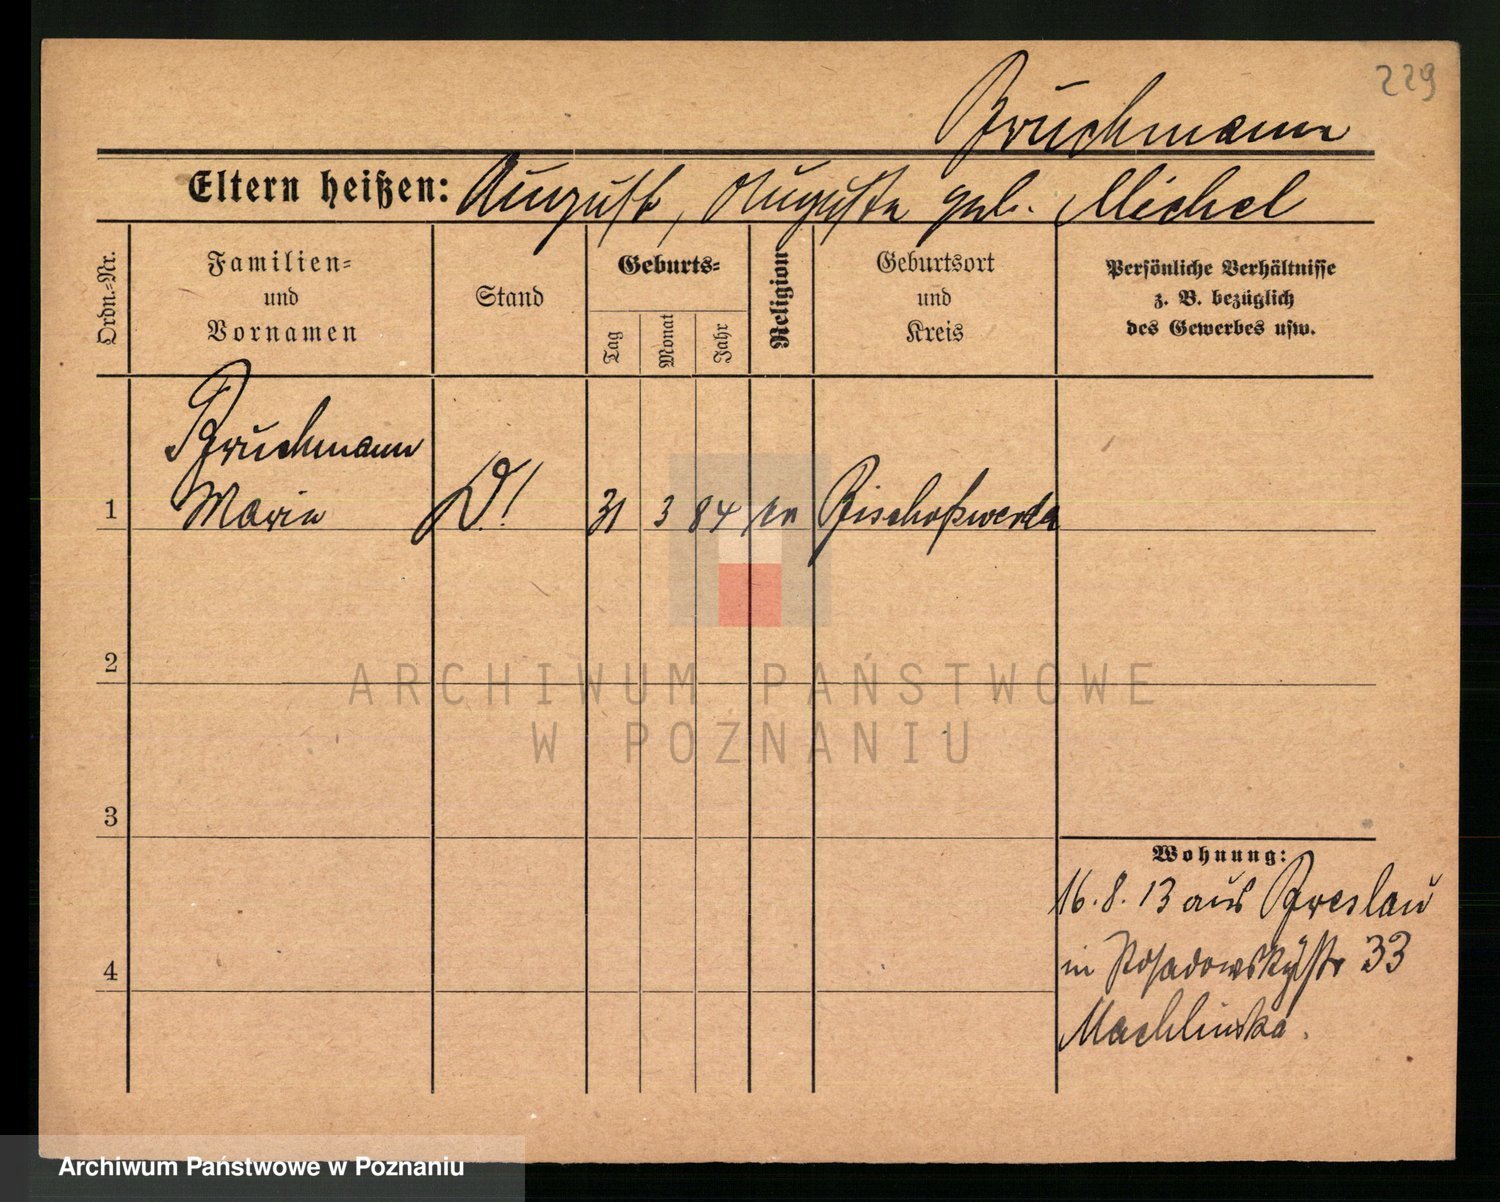 229
Bruchmann
Eltern heißen: August, Auguste geb. Michel
Ordn.-Nr.
Familien-
und
Vornamen
Stand
Geburts-
Tag
Monat
Jahr
Religion
Geburtsort
und
Kreis
Persönliche Verhältnisse
z. B. bezüglich
des Gewerbes usw.
Bruchmann
1 Marie D! 31 3 84 ev Bischofswerda
2
ARCHIWUM PAŃSTWOWE
W POZNANIU
3
Wohnung:
16.8.13 aus Breslau
4 in Posadowskystr 33
Machlinska.
Archiwum Państwowe w Poznaniu